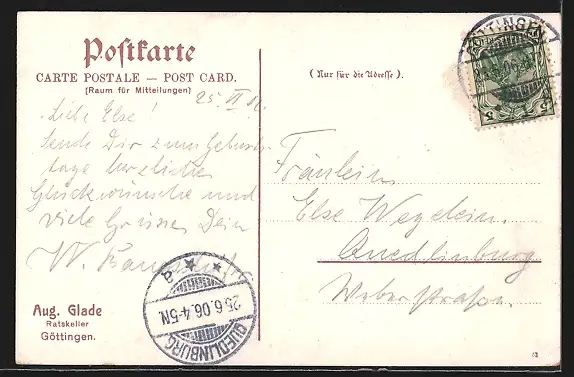 Postkarte
CARTE POSTALE — POST CARD.
(Raum für Mitteilungen)
(Nur für die Adresse).
25. VI 06.
Liebe Else!
Sende Dir zum Geburts-
tage herzliche
Glückwünsche und
viele Grüsse Dein
W.
Aug. Glade
Ratskeller
Göttingen.
Fräulein
Else Wegelein.
Quedlinburg
Weberstraße.
GÖTTINGEN
5 5
QUEDLINBURG
25.6.06.4-5N
* * a